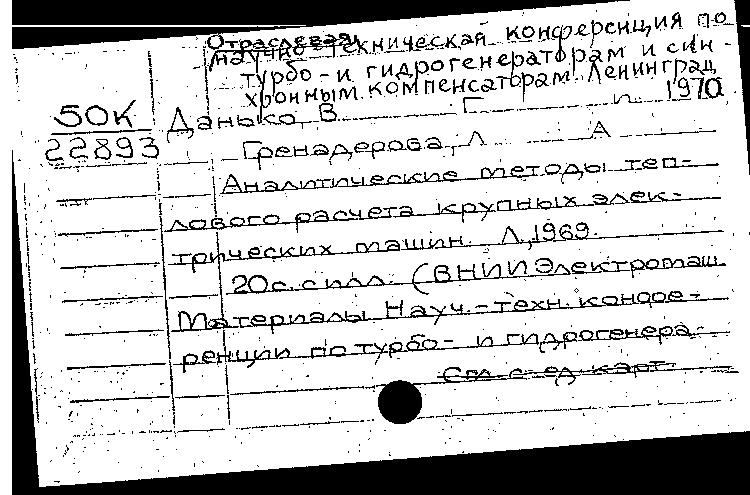 Отраслевая
научно-техническая конференция по
турбо- и гидрогенераторам и син-
хронным компенсаторам. Ленинград
1970
50К
22893
Данько, В Г п
Гренадерова, Л А
Аналитические методы теп-
лового расчета крупных элек-
трических машин. Л, 1969.
20 с. с илл. (ВНИИЭлектромаш
Материалы Науч.-техн. конфе-
ренции по турбо- и гидрогенера-
См. след. карт.